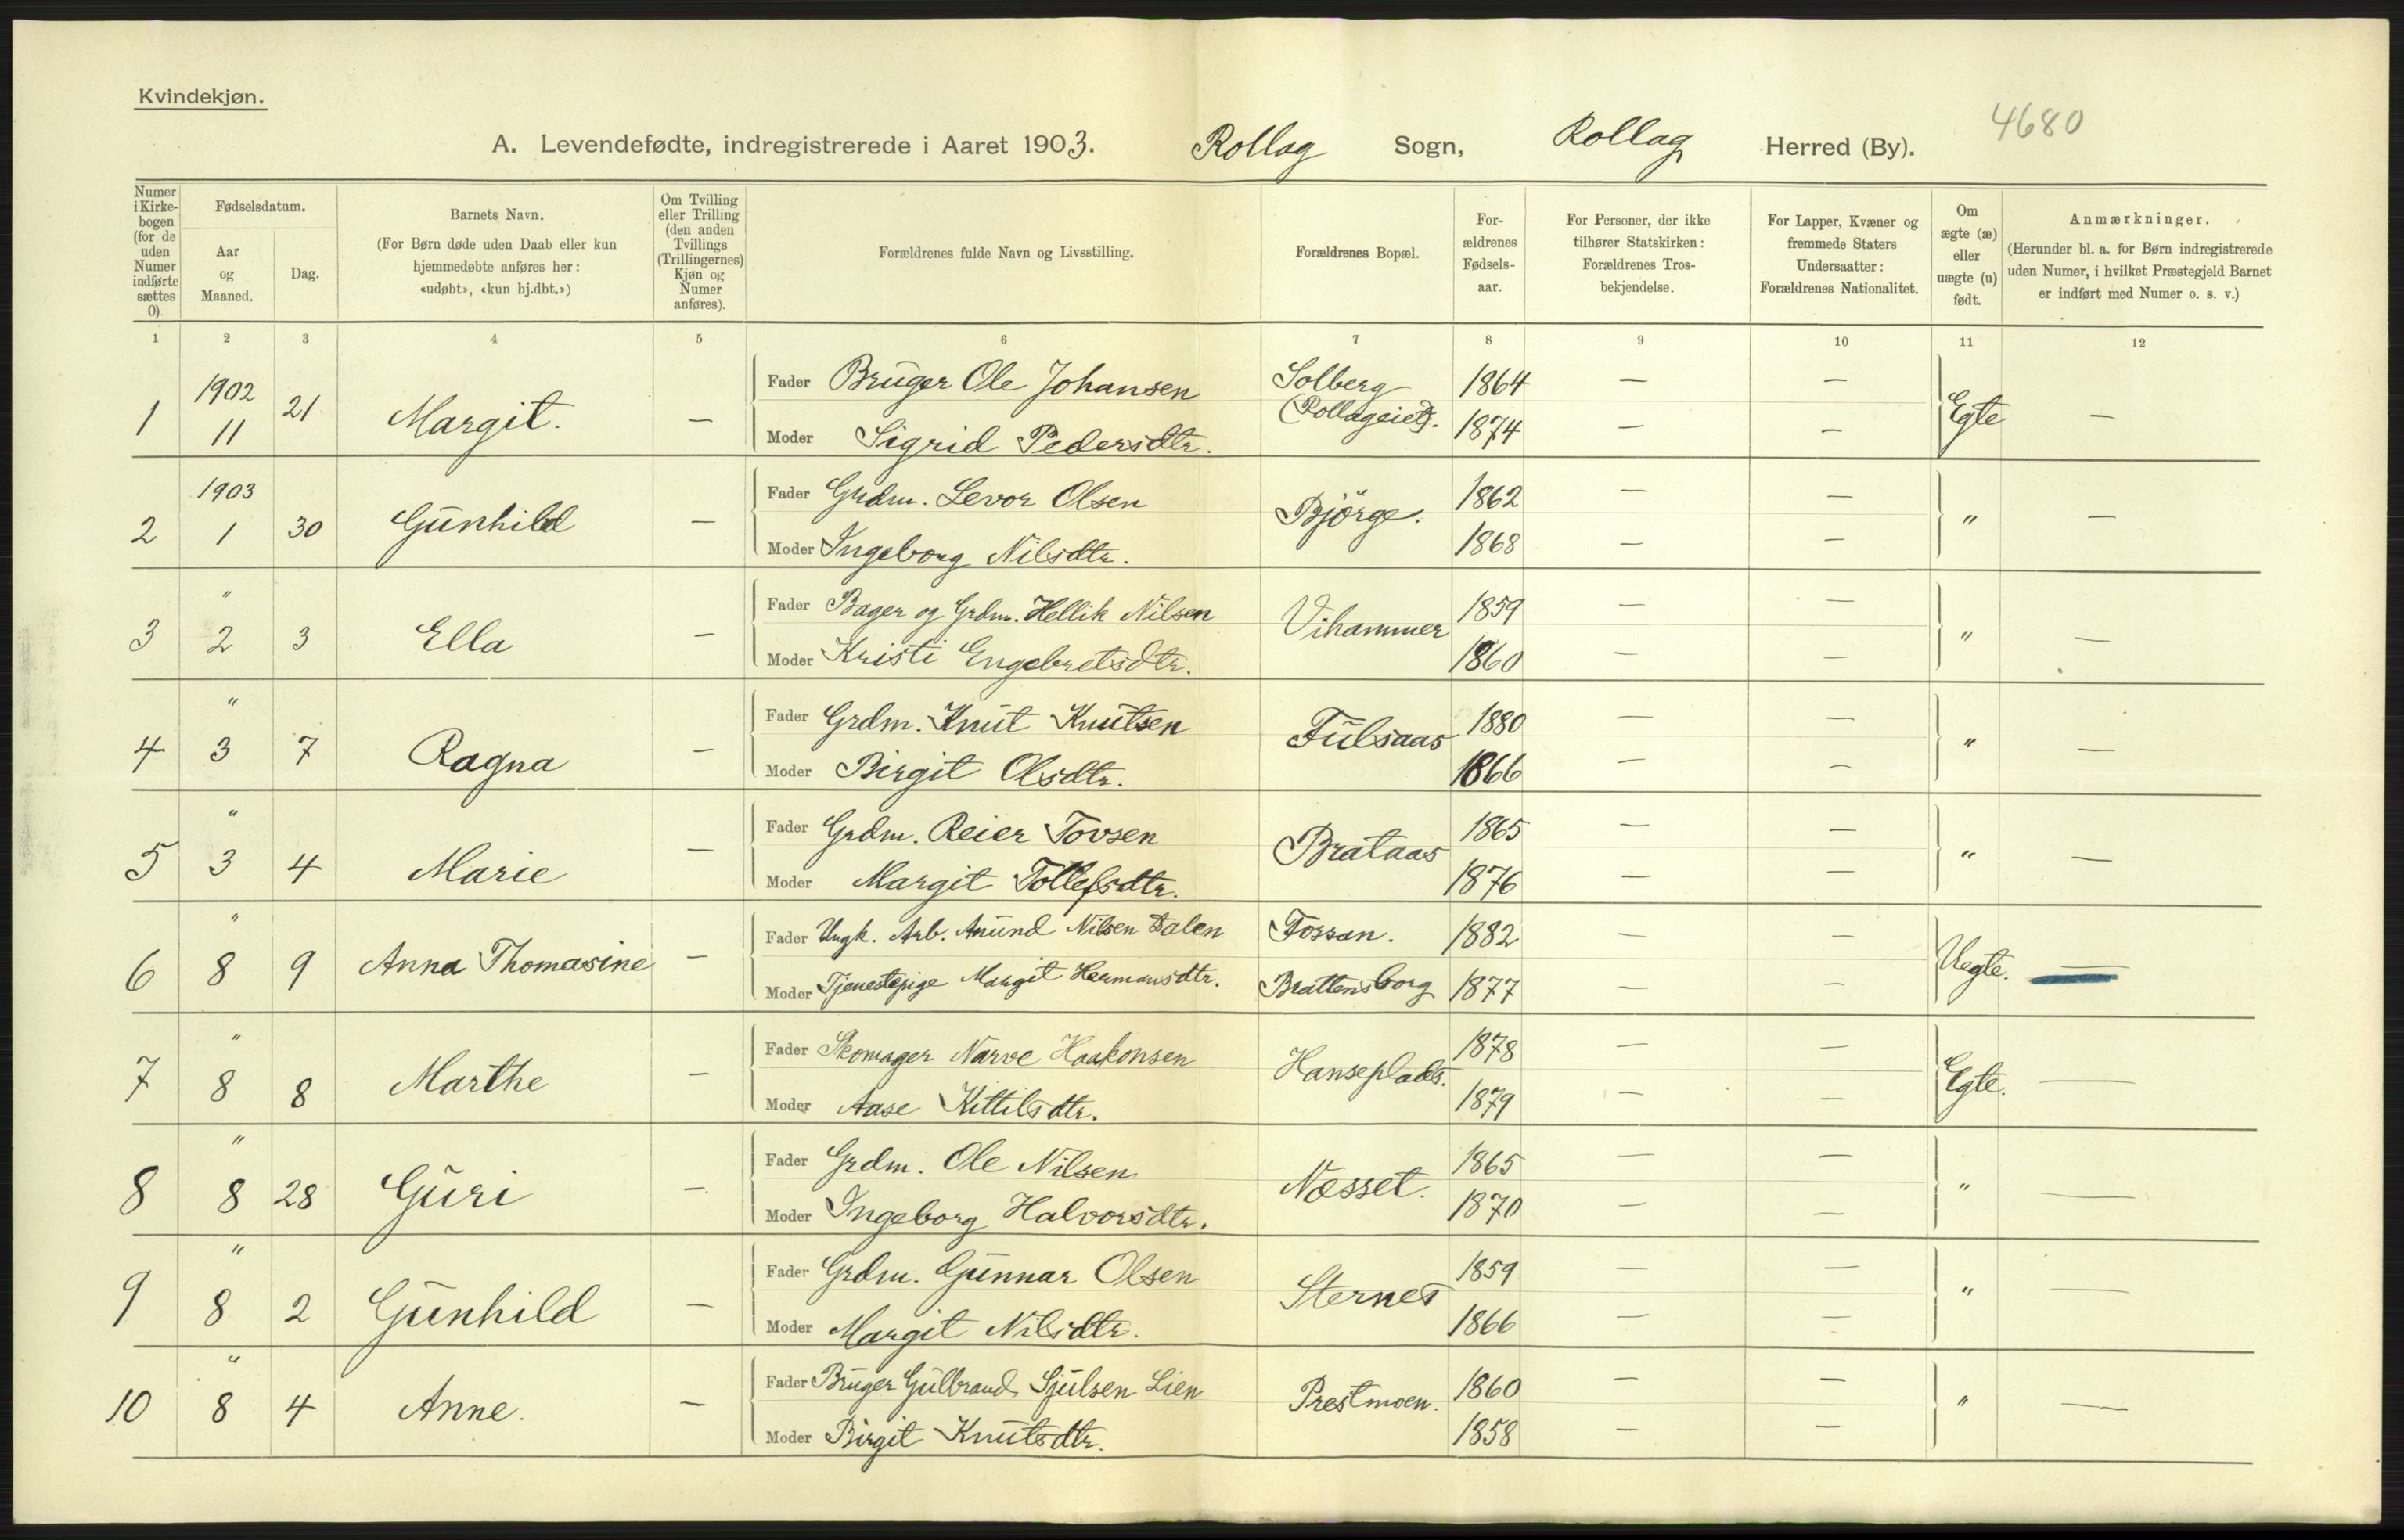 Kvindekjøn.
4680
A. Levendefødte, indregistrerede i Aaret 1903. Rollag Sogn, Rollag Herred (By).
Numer i Kirke-bogen (for de uden Numer indførte sættes 0).
Fødselsdatum.
Aar og Maaned.
Dag.
Barnets Navn.
(For Børn døde uden Daab eller kun hjemmedøbte anføres her: «udøbt», «kun hj.dbt.»)
Om Tvilling eller Trilling (den anden Tvillings (Trillingernes) Kjøn og Numer anføres).
Forældrenes fulde Navn og Livsstilling.
Forældrenes Bopæl.
For-ældrenes Fødsels-aar.
For Personer, der ikke tilhører Statskirken: Forældrenes Tros-bekjendelse.
For Lapper, Kvæner og fremmede Staters Undersaatter: Forældrenes Nationalitet.
Om ægte (æ) eller uægte (u) født.
Anmærkninger.
(Herunder bl. a. for Børn indregistrerede uden Numer, i hvilket Præstegjeld Barnet er indført med Numer o. s. v.)
1 2 3 4 5 6 7 8 9 10 11 12
1 1902 11 21 Margit. — Fader Bruger Ole Johansen Solberg (Rollageiet). 1864 — — Egte —
Moder Sigrid Pedersdtr. 1874 — —
2 1903 1 30 Gunhild — Fader Grdm. Levor Olsen Björge. 1862 — — " —
Moder Ingeborg Nilsdtr. 1868 — —
3 " 2 3 Ella — Fader Bager og Grdm. Hellik Nilsen Vihammer 1859 — — " —
Moder Kristi Engebretsdtr. 1860 — —
4 " 3 7 Ragna — Fader Grdm. Knut Knutsen Fulsaas 1880 — — " —
Moder Birgit Olsdtr. 1866 — —
5 " 3 4 Marie — Fader Grdm. Reier Tovsen Brataas 1865 — — " —
Moder Margit Tollefsdtr. 1876 — —
6 " 8 9 Anna Thomasine — Fader Ungk. Arb. Anund Nilsen Dalen Fossan. 1882 — — Uegte. —
Moder Tjenestepige Margit Hermansdtr. Brattensborg 1877 — —
7 " 8 8 Marthe — Fader Skomager Narve Haakonsen Hanseplads. 1878 — — Egte. —
Moder Aase Kittilsdtr. 1879 — —
8 " 8 28 Guri — Fader Grdm. Ole Nilsen Næsset. 1865 — — " —
Moder Ingeborg Halvorsdtr. 1870 — —
9 " 8 2 Gunhild — Fader Grdm. Gunnar Olsen Sternes 1859 — — " —
Moder Margit Nilsdtr. 1866 — —
10 " 8 4 Anne. — Fader Bruger Gulbrand Sjulsen Lien Prestmoen. 1860 — — " —
Moder Birgit Knutsdtr. 1858 — —